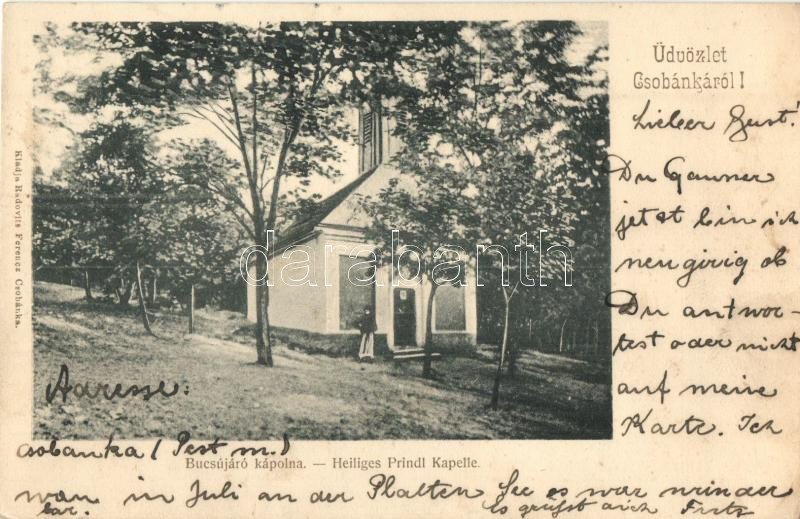 Üdvözlet
Csobánkáról!
Lieber Gust!
Du Gauner
jetzt bin ich
neugirig ob
Du antwor-
test oder nicht
auf meine
Karte. Ich
Kiadja Radovits Ferencz Csobánka.
darabanth
Adresse:
Csobanka (Pest m.)
Bucsújáró kápolna. — Heiliges Prindl Kapelle.
war in Juli an der Platten See es war wunder
bar. Es grüsst dich Fritz